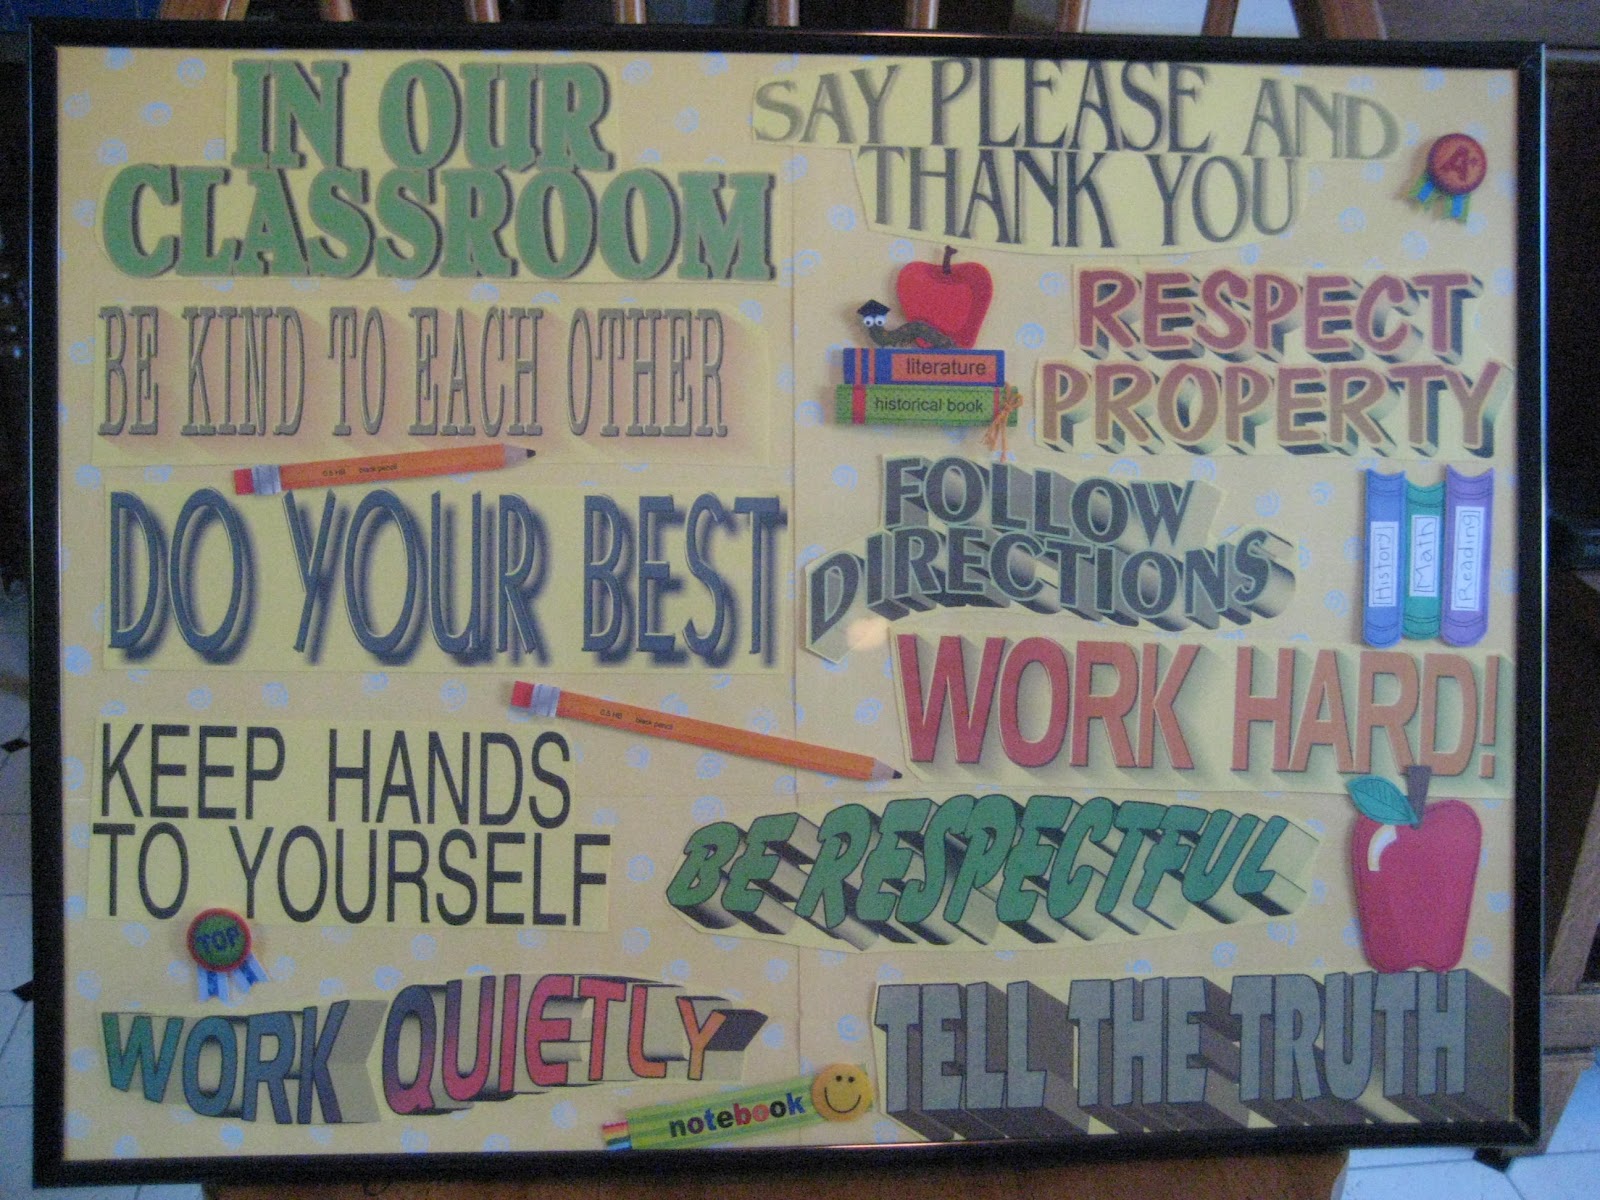 IN OUR
CLASSROOM
BE KIND TO EACH OTHER
0.5 HB black pencil
DO YOUR BEST
0.5 HB black pencil
KEEP HANDS
TO YOURSELF
TOP
WORK QUIETLY
notebook
SAY PLEASE AND
THANK YOU
A+
literature
historical book
RESPECT
PROPERTY
FOLLOW
DIRECTIONS
History
Math
Reading
WORK HARD!
BE RESPECTFUL
TELL THE TRUTH